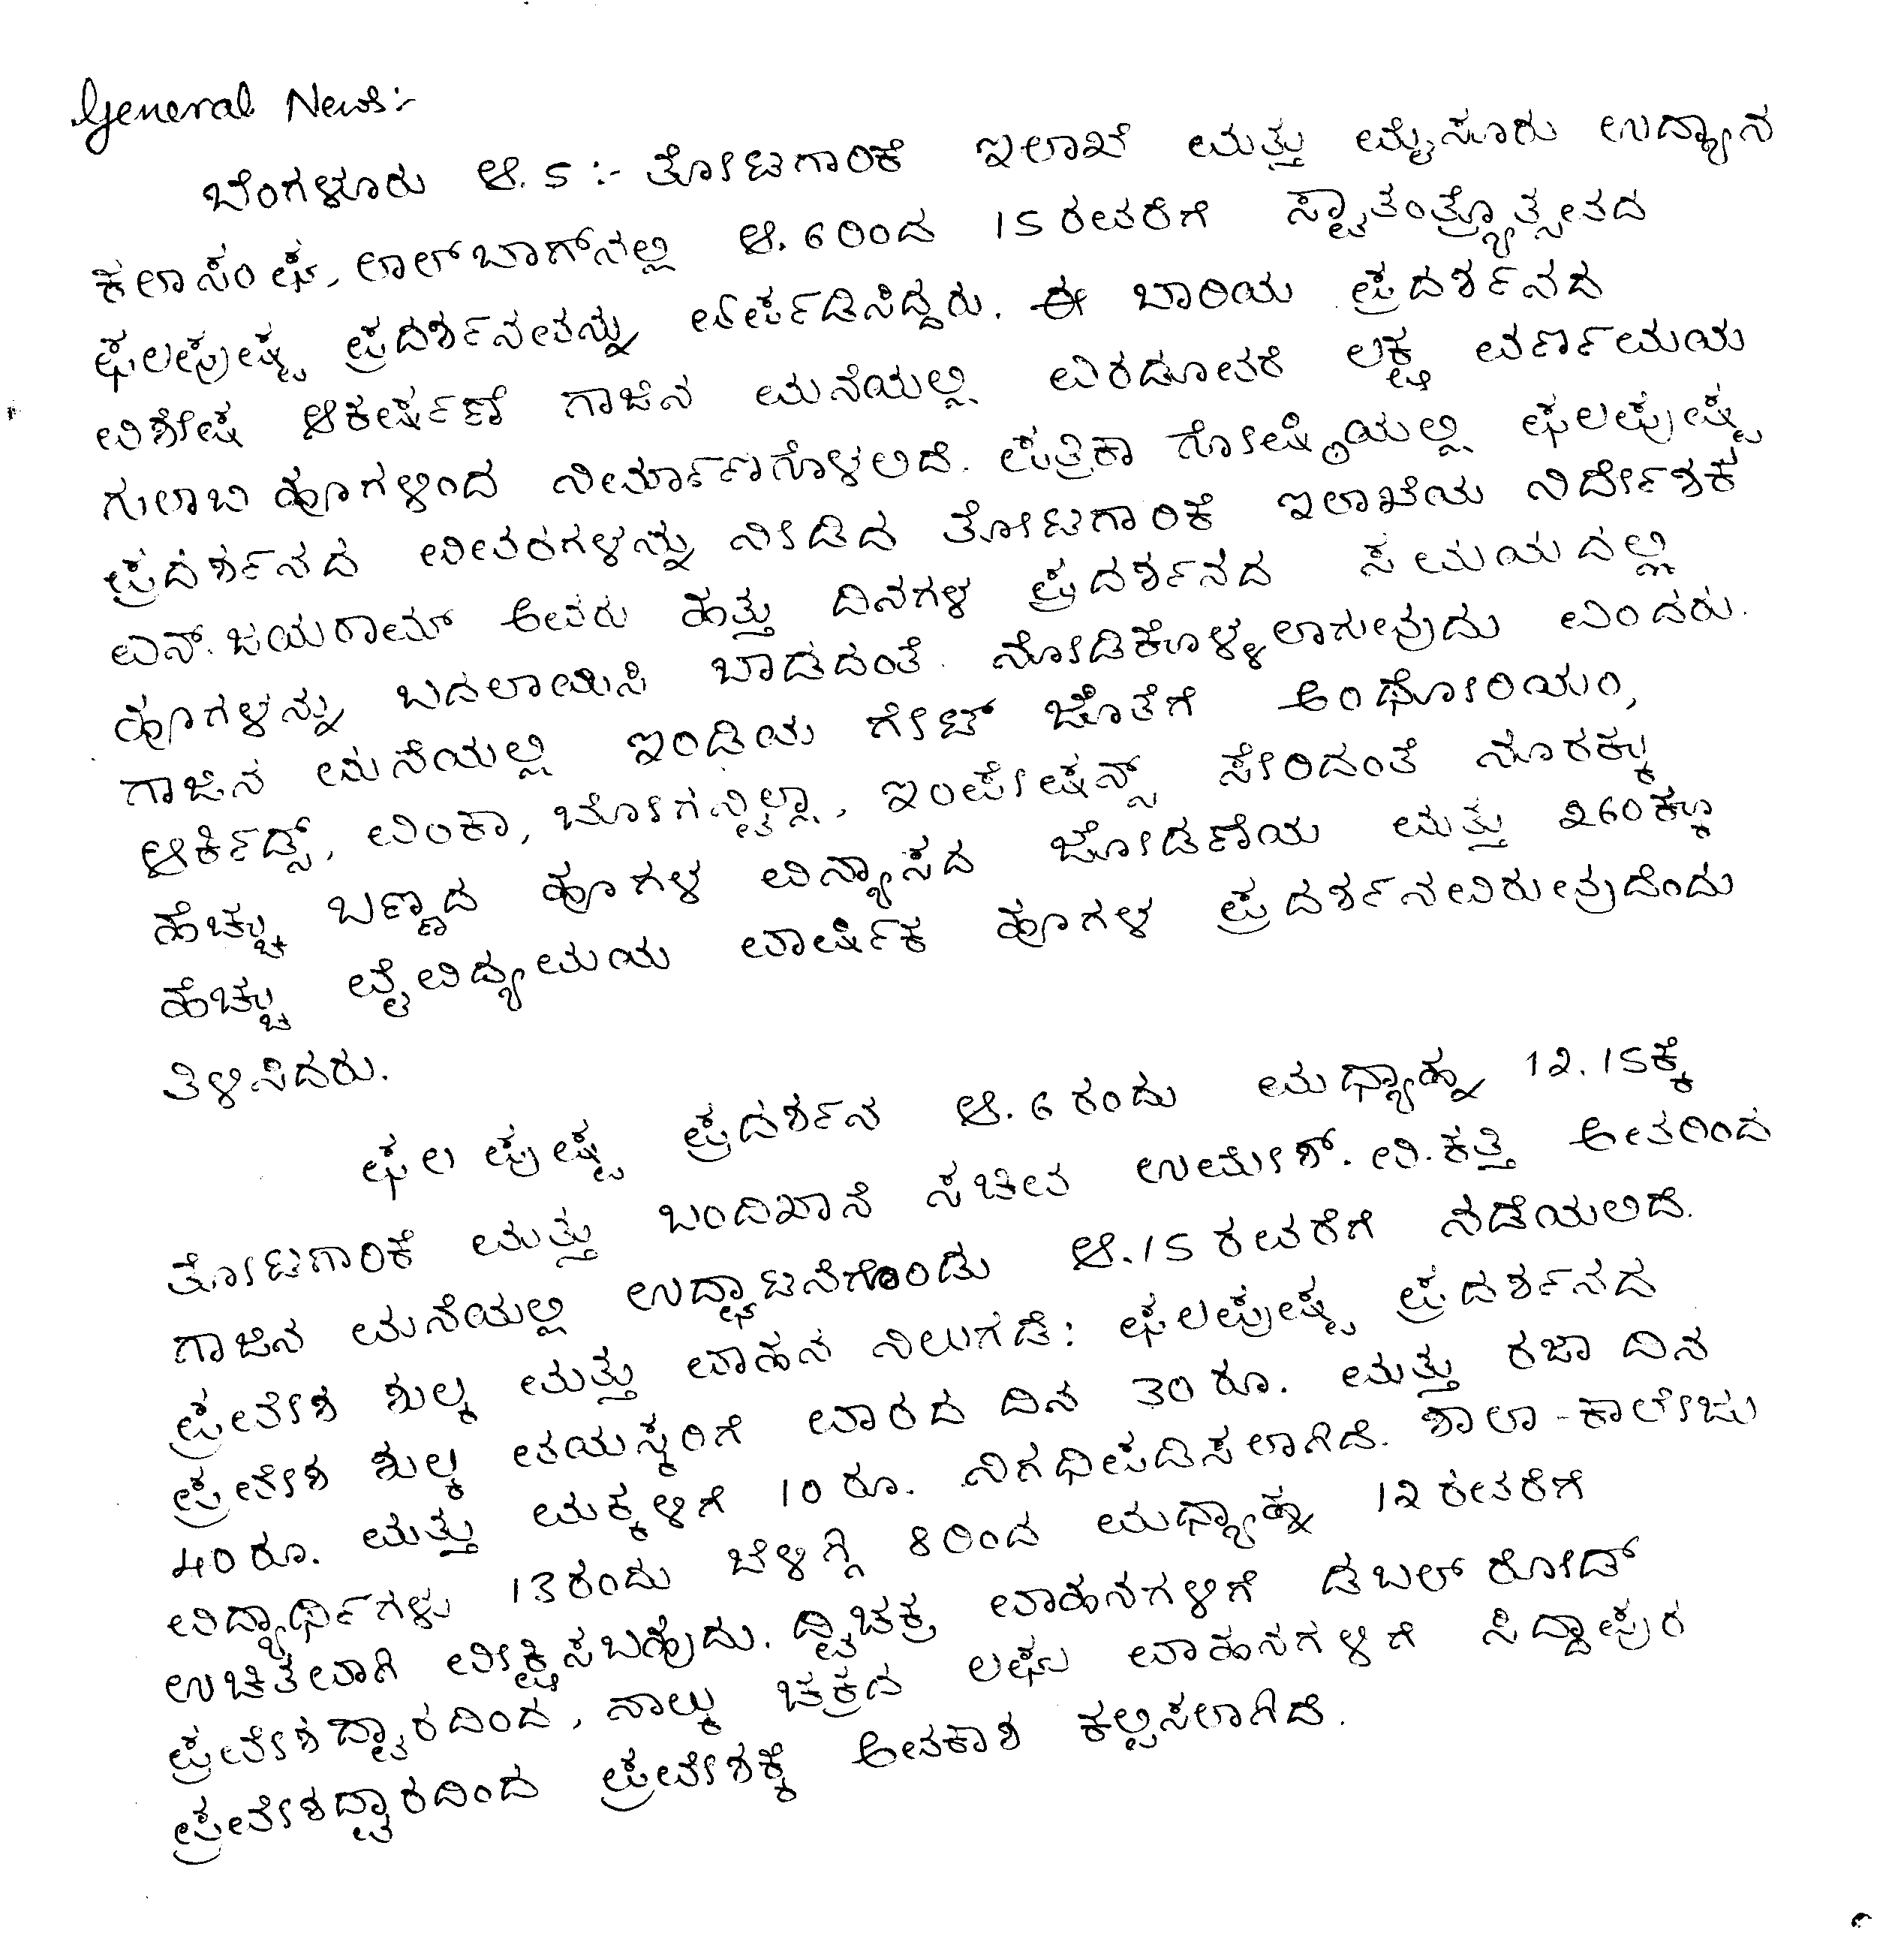 General News:-
ಬೆಂಗಳೂರು ಆ. 5 :- ತೋಟಗಾರಿಕೆ ಇಲಾಖೆ ಮತ್ತು ಮೈಸೂರು ಉದ್ಯಾನ
ಕಲಾಸಂಘ, ಲಾಲ್‌ಬಾಗ್‌ನಲ್ಲಿ ಆ. 6ರಿಂದ 15ರವರೆಗೆ ಸ್ವಾತಂತ್ರ್ಯೋತ್ಸವದ
ಫಲಪುಷ್ಪ ಪ್ರದರ್ಶನವನ್ನು ಏರ್ಪಡಿಸಿದ್ದರು. ಈ ಬಾರಿಯ ಪ್ರದರ್ಶನದ
ವಿಶೇಷ ಆಕರ್ಷಣೆ ಗಾಜಿನ ಮನೆಯಲ್ಲಿ ಎರಡೂವರೆ ಲಕ್ಷ ವರ್ಣಮಯ
ಗುಲಾಬಿ ಹೂಗಳಿಂದ ನಿರ್ಮಾಣಗೊಳಲಿದೆ. ಪತ್ರಿಕಾ ಗೋಷ್ಠಿಯಲ್ಲಿ ಫಲಪುಷ್ಪ
ಪ್ರದರ್ಶನದ ವಿವರಗಳನ್ನು ನೀಡಿದ ತೋಟಗಾರಿಕೆ ಇಲಾಖೆಯ ನಿರ್ದೇಶಕ
ಎನ್. ಜಯರಾಮ್ ಅವರು ಹತ್ತು ದಿನಗಳ ಪ್ರದರ್ಶನದ ಸಮಯದಲ್ಲಿ
ಹೂಗಳನ್ನು ಬದಲಾಯಿಸಿ ಬಾಡದಂತೆ ನೋಡಿಕೊಳ್ಳಲಾಗುವುದು ಎಂದರು.
ಗಾಜಿನ ಮನೆಯಲ್ಲಿ ಇಂಡಿಯ ಗೇಟ್ ಜೊತೆಗೆ ಅಂಥೋರಿಯಂ,
ಆರ್ಕಿಡ್ಸ್, ವಿಂಕಾ, ಬೋಗನ್ವಿಲ್ಲಾ, ಇಂಪೇಷನ್ಸ್ ಸೇರಿದಂತೆ ನೂರಕ್ಕು
ಹೆಚ್ಚು ಬಣ್ಣದ ಹೂಗಳ ವಿನ್ಯಾಸದ ಜೋಡಣೆಯ ಮತ್ತು 260ಕ್ಕೂ
ಹೆಚ್ಚು ವೈವಿದ್ಯಮಯ ವಾರ್ಷಿಕ ಹೂಗಳ ಪ್ರದರ್ಶನವಿರುವುದೆಂದು
ತಿಳಿಸಿದರು.
ಫಲ ಪುಷ್ಪ ಪ್ರದರ್ಶನ ಆ. 6 ರಂದು ಮಧ್ಯಾಹ್ನ 12.15ಕ್ಕೆ
ತೋಟಗಾರಿಕೆ ಮತ್ತು ಬಂದಿಖಾನೆ ಸಚಿವ ಉಮೇಶ್. ವಿ. ಕತ್ತಿ ಅವರಿಂದ
ಗಾಜಿನ ಮನೆಯಲ್ಲಿ ಉದ್ಘಾಟನೆಗೊಂಡು ಆ.15 ರವರೆಗೆ ನಡೆಯಲಿದೆ.
ಪ್ರವೇಶ ಶುಲ್ಕ ಮತ್ತು ವಾಹನ ನಿಲುಗಡೆ: ಫಲಪುಷ್ಪ ಪ್ರದರ್ಶನದ
ಪ್ರವೇಶ ಶುಲ್ಕ ವಯಸ್ಕರಿಗೆ ವಾರದ ದಿನ 30 ರೂ. ಮತ್ತು ರಜಾ ದಿನ
40 ರೂ. ಮತ್ತು ಮಕ್ಕಳಿಗೆ 10 ರೂ. ನಿಗಧಿಪಡಿಸಲಾಗಿದೆ. ಶಾಲಾ - ಕಾಲೇಜು
ವಿದ್ಯಾರ್ಥಿಗಳು 13ರಂದು ಬೆಳಿಗ್ಗೆ 8ರಿಂದ ಮಧ್ಯಾಹ್ನ 12ರವರೆಗೆ
ಉಚಿತವಾಗಿ ವೀಕ್ಷಿಸಬಹುದು. ದ್ವಿಚಕ್ರ ವಾಹನಗಳಿಗೆ ಡಬಲ್ ರೋಡ್
ಪ್ರವೇಶದ್ವಾರದಿಂದ, ನಾಲ್ಕು ಚಕ್ರದ ಲಘು ವಾಹನಗಳಿಗೆ ಸಿದ್ದಾಪುರ
ಪ್ರವೇಶದ್ವಾರದಿಂದ ಪ್ರವೇಶಕ್ಕೆ ಅವಕಾಶ ಕಲ್ಪಿಸಲಾಗಿದೆ.